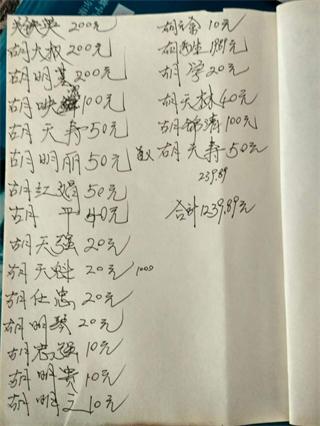 200元
胡大权 200元
胡明英 200元
胡映 100元
胡天寿 50元
胡明丽 50元
胡红娟 50元
胡 平 40元
胡天强 20元
胡天 20元 1000
胡仕忠 20元
胡明琴 20元
胡志强 10元
胡明贵 10元
胡明 10元
胡 10元
胡 生 19.89元
胡 20元
胡天林 40元
胡锦涛 100元
胡天寿 50元
239.89
合计1239.89元